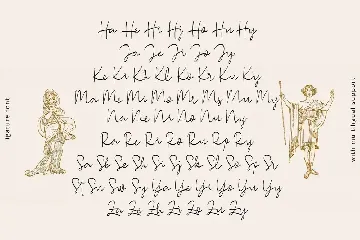 Ha He Hi Hj Ho Hu Hy
Ja Je Ji Jo Jy
Ke Ki Kl Kl Ko Kr Kv Ky
Ma Me Mi Mo Mc Ms Mu My
Na Ne Ni No Nu Ny
Ra Re Ri Ro Ru Ry
Sa Sc Se Sh Si Sj Sk Sl So Sr
St Su Sw Sy Ya Ye Yi Yo Yu Yy
Za Ze Zh Zi Zo Zu Zy
ligature font
with multilingual support